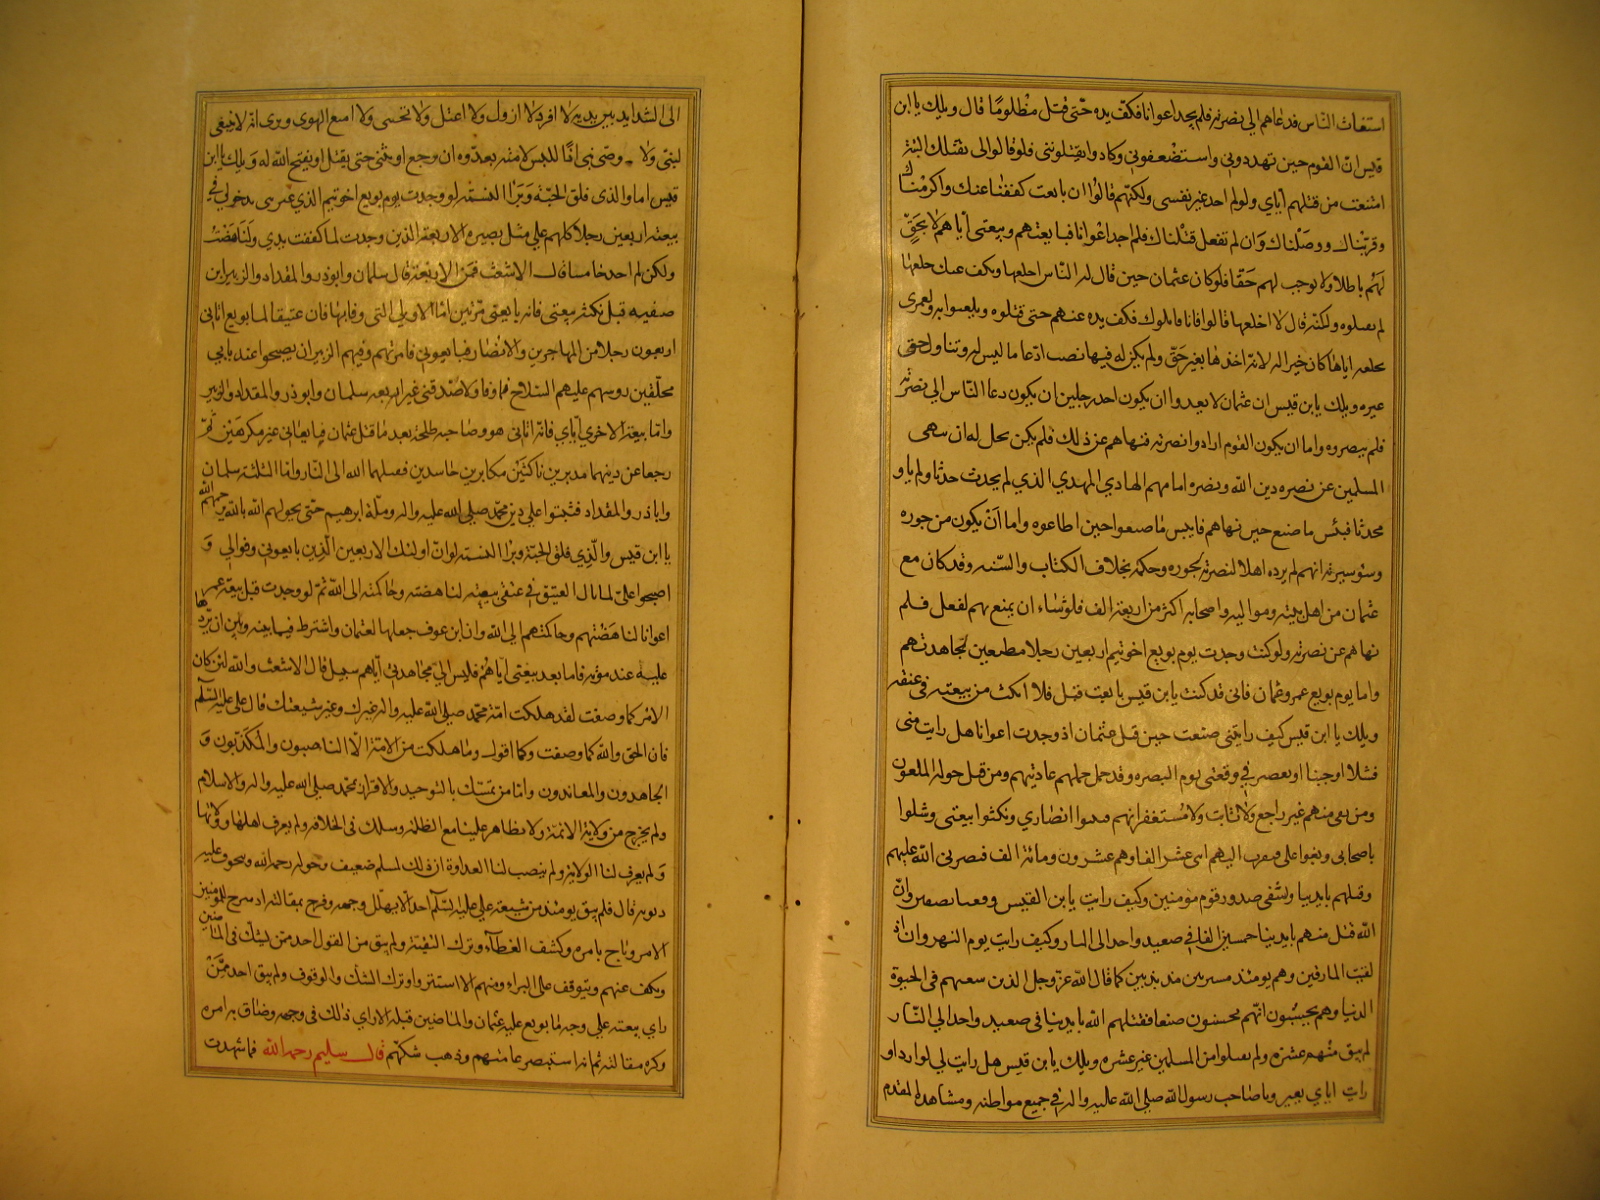 استغاث الناس فدعاهم الى نصرته فلم يجد اعوانا فكف يده حتى قتل مظلوما قال ويلك يا ابن
قيس ان القوم حين تهددونى واستضعفونى وكادوا يقتلوننى فلو قالوا لى نقتلك البتة
امتنعت من قتلهم اياى ولو لم اجد غير نفسى ولكنهم قالوا ان بايعت كففنا عنك واكرمناك
وقربناك ووصلناك وان لم تفعل قتلناك فلم اجد اعوانا فبايعتهم وبيعتى اياهم لا يحق
لهم باطلا ولا توجب لهم حقا فلو كان عثمان حين قال له الناس اخلعها ونكف عنك خلعها
لم يقتلوه ولكنه قال لا اخلعها قالوا فانا قاتلوك فكف يده عنهم حتى قتلوه ولعمرى
خلعه اياها كان خيرا له لانه اخذها بغير حق ولم يكن له فيها نصيب ادعا ما ليس له وتناول حق
غيره ويلك يا بن قيس ان عثمان لا يعدوا ان يكون احد رجلين ان يكون دعا الناس الى نصرته
فلم ينصروه واما ان يكون القوم ارادوا نصرته فنهاهم عن ذلك فلم يكن يحل له ان ينهى
المسلمين عن نصره دين الله ونصره امامهم الهادي المهدي الذي لم يحدث حدثا ولم ياو
محدثا فبئس ما صنع حين نهاهم فابيس ما صنعوا حين اطاعوه واما ان يكون من جوره
وسؤ سيرته انهم لم يرده اهلا لنصرته لجوره وحكمه بخلاف الكتاب والسنه وقد كان مع
عثمان من اهل بيته ومواليه واصحابه اكثر من اربعة الف فلو شاء ان يمنع بهم لفعل فلم
نهاهم عن نصرته ولو كنت وجدت يوم بويع اخو تيم اربعين رجلا مطيعين لجاهدتهم
واما يوم بويع عمر وعثمان فانى قد كنت يا بن قيس بايعت قبل فلا انكث من بيعته فى عنقه
ويلك يا ابن قيس كيف رايتنى صنعت حين قتل عثمان اذ وجدت اعوانا هل رايت منى
فشلا او جبنا او تقصير في وقعتى يوم البصره وقد حمل جملهم عاديتهم ومن قتل حوله الملعون
ومن بقى منهم غير راجع ولا ثابت ولا مستغفر انهم قتلوا انصاري ونكثوا بيعتى ومثلوا
باصحابى وبغوا على وسرت اليهم اثنى عشر الف وهم عشرون ومائة الف فنصرنى الله عليهم
وقتلهم بايدينا وشفى صدور قوم مؤمنين وكيف رايت يا بن القيس وقعتنا بصفين وان
الله قتل منهم بايدينا خمسين الفا في صعيد واحد الى النار وكيف رايت يوم النهروان اذ
لقيت المارقين وهم يومئذ مستبصرين متدينين كما قال الله عز وجل الذين سعيهم فى الحيوة
الدنيا وهم يحسبون انهم محسنون صنعا فقتلهم الله بايدينا فى صعيد واحد الى النار
لم يبق منهم عشره ولم يقتلوا من المسلمين غير عشره ويلك يا بن قيس هل رايت لى لوا رد او
رايت اياي بعير ويا صاحب رسول الله صلى الله عليه واله في جميع مواطنه ومشاهده المقدم
الى الشدايد بين يديه لا افر ولا ازول ولا اعتل ولا تحسى ولا امنع الهوى ويرى انه لا ينبغى
لنبى ولا وصى نبى اذا لبس لامته بعدوه ان رجع او ينثنى حتى يقتل او يفتح الله له ويلك يا بن
قيس اما والذى فلق الحبة وبرأ النسمة لو وجدت يوم بويع اخو تيم الذي عيرتنى بدخولي في
بيعته اربعين رجلا كلهم على مثل بصيره الاربعة الذين وجدت لما كففت يدى ولناهضت
ولكن لم اجد خامسا قال الاشعث فمن الاربعة قال سلمان وابو ذر والمقداد والزبير ابن
صفيه قبل نكثه بيعتى فانه بايعنى مرتين اما الاولى التى وفا بها فان عتيقا لما بويع اتانى
اربعون رجلا من المهاجرين والانصار فبايعونى فامرتهم وفيهم الزبير ان يصبحوا عند بابى
محلقين روسهم عليهم السلاح فما وفا ولا صدقنى غير اربعه سلمان وابو ذر والمقداد والزبير
واما بيعته الاخري اياي فانه اتانى هو وصاحبه طلحة بعد ما قتل عثمان فبايعانى غير مكرهين ثم
رجعا عن دينهما مدبرين ناكثين مكابرين حاسدين فقتلهما الله الى النار واما الثلثة سلمان
وابا ذر والمقداد فثبتوا على دين محمد صلى الله عليه واله وملة ابرهيم حتى يحولهم الله بالله يرحمهم الله
يا ابن قيس والذي فلق الحبة وبرا النسمة لو ان اولئك الاربعين الذين بايعونى وفوالي و
اصبحوا على لما بال العتيق في عنقى بيعته لناهضته وحاكمته الى الله ثم لو وجدت قبل بيعة عمر
اعوانا لناهضتهم وحاكمتهم الى الله وان ابن عوف جعلها لعثمان واشترط فيما بينه وبين ان يردها
عليه عند موته فاما بعد بيعتى اياهم فليس الى مجاهدتى اياهم سبيل قال الاشعث والله لئن كان
الامر كما وصفت لقد هلكت امة محمد صلى الله عليه واله غيرك وغير شيعتك قال على عليه السلم
فان الحق والله كما وصفت وكما اقول وما هلكت من الامة الا الناصبون والمكذبون و
الجاهدون والمعاندون واما من تمسك بالتوحيد والاقرار بمحمد صلى الله عليه واله والاسلام
ولم يخرج من ولاية الائمة ولا يظاهر علينا مع الظلمة وسلك فى الخلافه ولم يعرف اهلها وولاتها
ولم يعرف لنا الولاية ولم ينصب لنا العداوة ان ذلك لمسلم ضعيف وحوله رحمه الله ويخوف عليه
ذنوبه قال فلم يبق يومئذ من شيعة على عليه السلم احد الا يهلل وجهه وفرح بمقالته اذ شرح للمؤمنين
الامر وباح بامره وكشف الغطاء وترك التقية ولم يبق من القول احد ممن ليشك فى الماضين
ويكف عنهم ويتوقف على البراء ومنهم الا استتر واوترك الشك والوقوف ولم يبق احد ممن
راى بيعته على وجه لما بويع عليه عثمان والماضين قبله الا راي ذلك فى وجهه وضاق به امره
وكره مقالته ثم انه استبصر عامتهم وذهب شكهم قال سليم رحمه الله فما شهدت